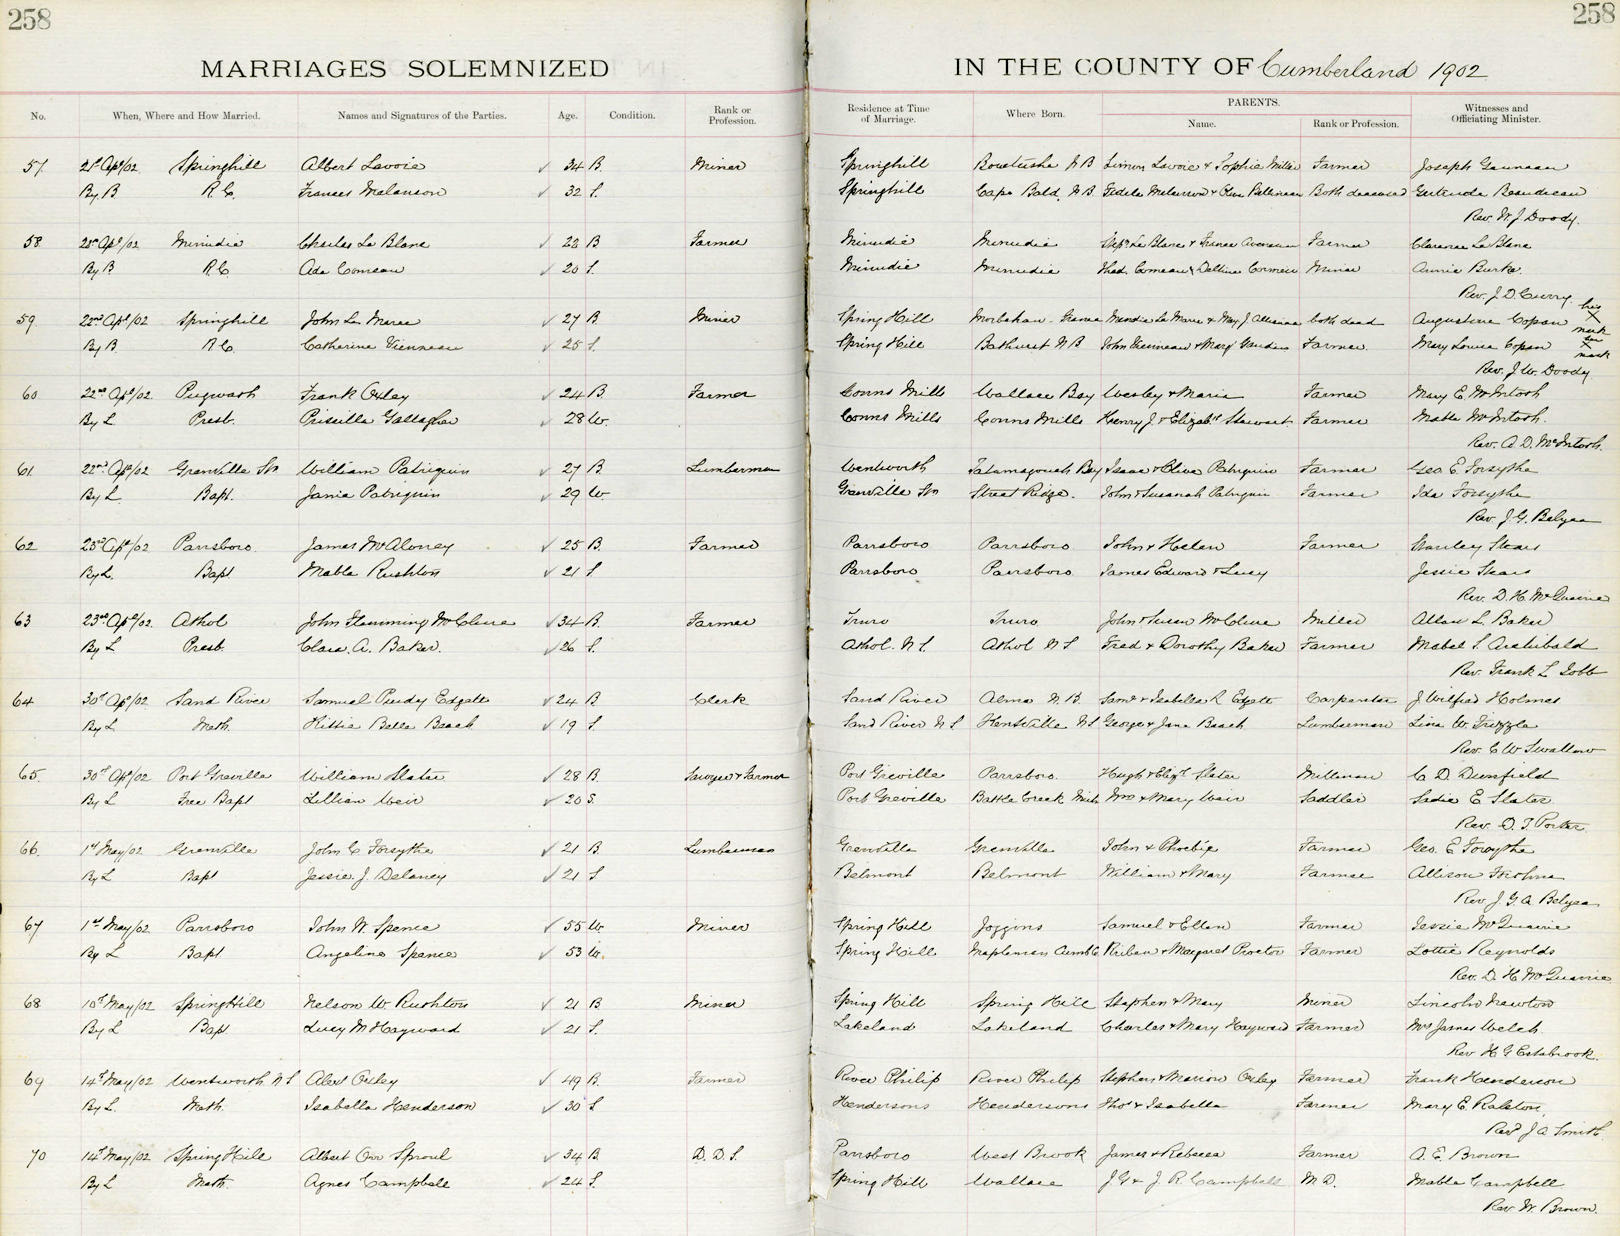 258 258
MARRIAGES SOLEMNIZED IN THE COUNTY OF Cumberland 1902
No. When, Where and How Married. Names and Signatures of the Parties. Age. Condition. Rank or Profession. Residence at Time of Marriage. Where Born. PARENTS. Name. Rank or Profession. Witnesses and Officiating Minister.
57 21st Apl/02 Springhill Albert Lavoie ✓ 34 B. Miner Springhill N B Simon Lavoie & Sophia Farmer Joseph
By B R.C. Frances Melanson ✓ 32 S. Springhill Cape Bald. N.B. Both deceased Gertrude Beaudreau
Rev. W. J. Doody.
58 Apl/02 Minudie Charles Le Blanc ✓ 22 B Farmer Minudie Minudie Le Blanc & Farmer Clarence Le Blanc
By B R.C Ada Comeau ✓ 20 S. Minudie Minudie Thad. Comeau & Cormier Miner Annie Burke.
Rev. J. D. Curry
59 22nd Apl/02 Springhill John Le Marre ✓ 27 B. Miner Spring Hill France Le Marre & both dead Augustine Copan his X mark
By B. R.C. Catherine Vienneau ✓ 25 S. Spring Hill Bathurst N B John Vienneau & Mary Farmer. Mary Louise Copan her X mark
Rev. J. W. Doody
60 22nd Apl/02 Pugwash Frank Oxley ✓ 24 B. Farmer Conns Mills Wallace Bay Wesley & Maria Farmer Mary E. McIntosh
By L Presb. Priscilla Gallagher ✓ 28 W. Conns Mills Conns Mills Henry J. & Elizabth Stewart Farmer Mable McIntosh.
Rev. A. D. McIntosh.
61 22nd Apl/02 Grenville Stn William Patriquin ✓ 27 B. Lumberman Wentworth Tatamagouch Bay Isaac & Olive Patriquin Farmer Geo. E. Forsythe
By L Bapt. Janie Patriquin ✓ 29 W Grenville Stn Street Ridge. John & Susanah Patriquin Farmer Ida Forsythe
Rev. J. G. Belyea
62 23rd Apl/02 Parrsboro James McAloney ✓ 25 B. Farmer Parrsboro Parrsboro John & Helen Farmer Stanley
By L. Bapt Mable Rushton ✓ 21 S Parrsboro Parrsboro James Edward & Lucy Jessie
Rev. D. H. McQuarrie
63 23rd Apl/02. Athol John Flemming McClure ✓ 34 B. Farmer Truro Truro John & Susan McClure Miller Allan L. Baker
By L Presb. Clara A. Baker. ✓ 26 S. Athol. N S. Athol N S Fred & Dorothy Baker Farmer Mabel S. Archibald
Rev. Frank L. Jobb
64 30th Apl/02 Sand River Samuel Purdy Edgett ✓ 24 B Clerk Sand River Alma N. B. Saml & Isabella R Edgett Carpenter J Wilfred Holmes
By L Meth. Kittie Belle Beach ✓ 19 S. Sand River N S N S George & Jane Beach Lumberman Lina W. Frizzle
Rev. C W Swallow
65. 30th Apl/02 Port Greville William Slater ✓ 28 B. Sawyer & Farmer Port Greville Parrsboro. Hugh & Elizth Slater Millman C. D. Dunfield
By L Free Bapt Lillian Weir ✓ 20 S. Port Greville Battle Creek Mich Wm & Mary Weir Saddler Sadie E. Slater
Rev. O. T. Porter
66 1st May/02 Grenville John C Forsythe ✓ 21 B Lumberman Grenville Grenville John & Phoebie Farmer Geo. E Forsythe
By L Bapt Jessie J. Delaney ✓ 21 S Belmont Belmont William & Mary Farmer Allison
Rev J. G. A. Belyea
67 1st May/02 Parrsboro John W. Spence ✓ 55 W. Miner Spring Hill Joggins Samuel & Ellen Farmer Jessie McQuarrie
By L Bapt Angeline Spence ✓ 53 W. Spring Hill Cumb Co. & Margaret Proctor Farmer Lottie Reynolds
Rev. D. H. McQuarrie
68 10th May/02 Spring Hill Nelson W. Rushton ✓ 21 B Miner Spring Hill Spring Hill Stephen & Mary Miner Lincoln Newton
By L Bapt. Lucy M Hayward ✓ 21 S. Lakeland Lakeland Charles & Mary Hayward Farmer Mrs James Welch.
Rev H. G. Estabrook.
69 14th May/02 Wentworth N S Alex Oxley ✓ 49 B. Farmer River Philip River Philip Stephen & Marion Oxley Farmer Frank Henderson
By L. Meth. Isabella Henderson ✓ 30 S Hendersons Hendersons Thos & Isabella Farmer Mary E. Ralston.
Revd J. A. Smith.
70 14th May/02 Spring Hill Albert Orr Sproul ✓ 34 B D. D. S. Parrsboro West Brook James & Rebecca Farmer A. E. Brown
By L Meth. Agnes Campbell ✓ 24 S. Spring Hill Wallace J G & J R Campbell M. D. Mable Campbell
Rev. W. Brown.